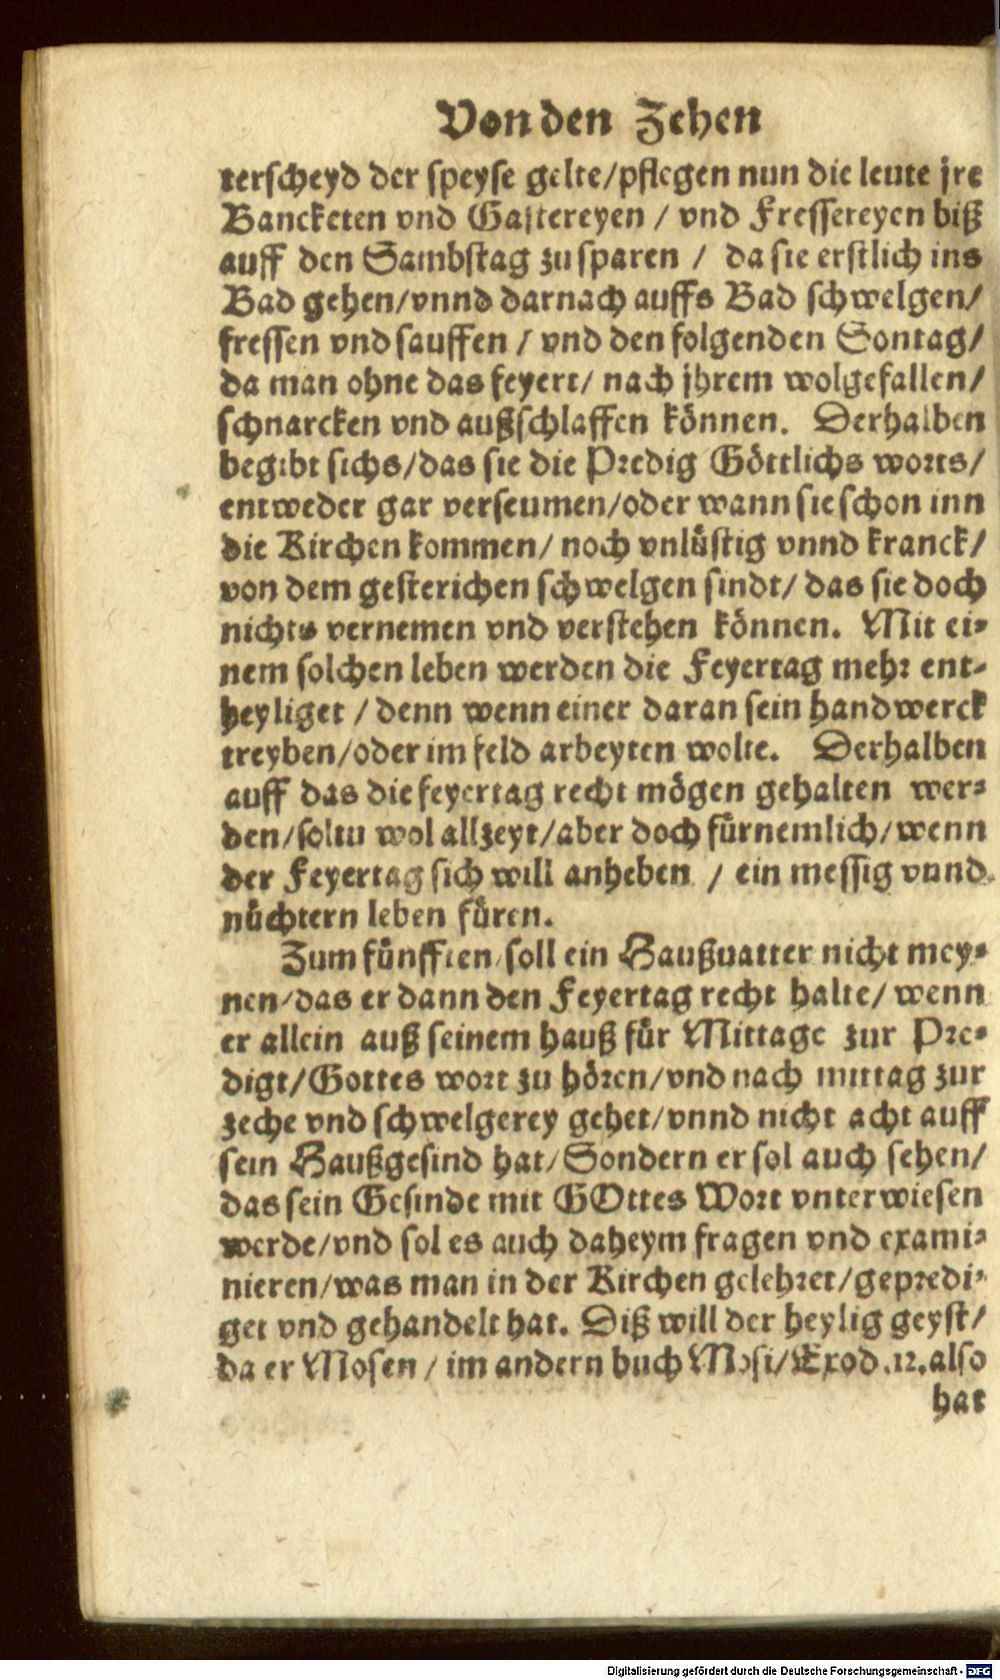 Von den Zehen
terscheyd der speyse gelte/pflegen nun die leute jre
Bancketen vnd Gastereyen / vnd Fressereyen biß
auff den Sambstag zu sparen / da sie erstlich ins
Bad gehen/vnnd darnach auffs Bad schwelgen/
fressen vnd sauffen / vnd den folgenden Sontag/
da man ohne das feyert/ nach jhrem wolgefallen/
schnarcken vnd außschlaffen können. Derhalben
begibt sichs/das sie die Predig Göttlichs worts/
entweder gar verseumen/oder wann sie schon inn
die Kirchen kommen/ noch vnlüstig vnnd kranck/
von dem gesterichen schwelgen sindt/ das sie doch
nichts vernemen vnd verstehen können. Mit ei-
nem solchen leben werden die Feyertag mehr ent-
heyliget / denn wenn einer daran sein handwerck
treyben/oder im feld arbeyten wolte. Derhalben
auff das die feyertag recht mögen gehalten wer-
den/soltu wol allzeyt/aber doch fürnemlich/wenn
der Feyertag sich will anheben / ein messig vnnd
nüchtern leben füren.
Zum fünfften/soll ein Haußuatter nicht mey-
nen/das er dann den Feyertag recht halte/ wenn
er allein auß seinem hauß für Mittage zur Pre-
digt/Gottes wort zu hören/vnd nach mittag zur
zeche vnd schwelgerey gehet/vnnd nicht acht auff
sein Haußgesind hat/Sondern er sol auch sehen/
das sein Gesinde mit GOttes Wort vnterwiesen
werde/vnd sol es auch daheym fragen vnd exami-
nieren/was man in der Kirchen gelehret/gepredi-
get vnd gehandelt hat. Diß will der heylig geyst/
da er Mosen / im andern buch Mosi/Exod.12.also
hat
Digitalisierung gefördert durch die Deutsche Forschungsgemeinschaft - DFG